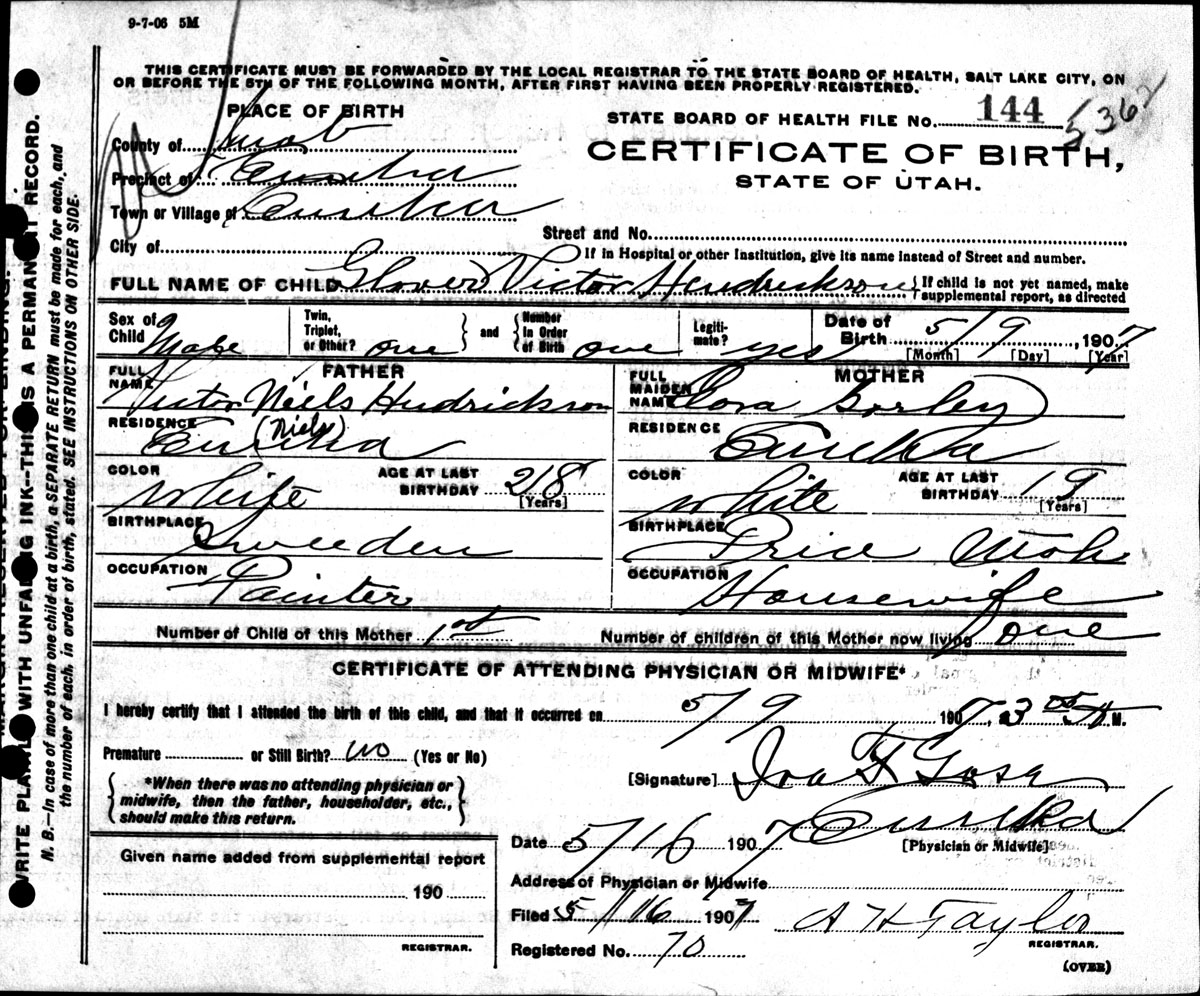 9-7-06 5M
THIS CERTIFICATE MUST BE FORWARDED BY THE LOCAL REGISTRAR TO THE STATE BOARD OF HEALTH, SALT LAKE CITY, ON
OR BEFORE THE 5TH OF THE FOLLOWING MONTH, AFTER FIRST HAVING BEEN PROPERLY REGISTERED.
PLACE OF BIRTH
STATE BOARD OF HEALTH FILE No. 144 5367
County of Juab
CERTIFICATE OF BIRTH,
STATE OF UTAH.
Precinct of Eureka
Town or Village of Eureka
Street and No.
City of
If in Hospital or other Institution, give its name instead of Street and number.
FULL NAME OF CHILD Glover Victor Hendrickson
If child is not yet named, make
supplemental report, as directed
Sex of Child Male
Twin, Triplet, or Other? one
and
Number In Order of Birth one
Legiti-mate? yes
Date of Birth 5/9, 1907
[Month] [Day] [Year]
FATHER
FULL NAME Victor Niels Hendrickson
(Niels)
RESIDENCE Eureka
COLOR White
AGE AT LAST BIRTHDAY 28
[Years]
BIRTHPLACE Sweeden
OCCUPATION Painter
MOTHER
FULL MAIDEN NAME Clora Gorley
RESIDENCE Eureka
COLOR White
AGE AT LAST BIRTHDAY 19
[Years]
BIRTHPLACE Price Utah
OCCUPATION Housewife
Number of Child of this Mother 1st
Number of children of this Mother now living one
CERTIFICATE OF ATTENDING PHYSICIAN OR MIDWIFE*
I hereby certify that I attended the birth of this child, and that it occurred on 5/9 1907, 3 05 A M.
Premature or Still Birth? no (Yes or No)
*When there was no attending physician or
midwife, then the father, householder, etc.,
should make this return.
[Signature]
Eureka
Date 5/16 1907
[Physician or Midwife]
Given name added from supplemental report
190
REGISTRAR.
Address of Physician or Midwife
Filed 5/16 1907 A H Taylor
REGISTRAR.
Registered No. 70
(OVER)
WRITE PLAINLY WITH UNFADING INK—THIS IS A PERMANENT RECORD.
N. B.—In case of more than one child at a birth, a SEPARATE RETURN must be made for each, and
the number of each, in order of birth, stated. SEE INSTRUCTIONS ON OTHER SIDE.